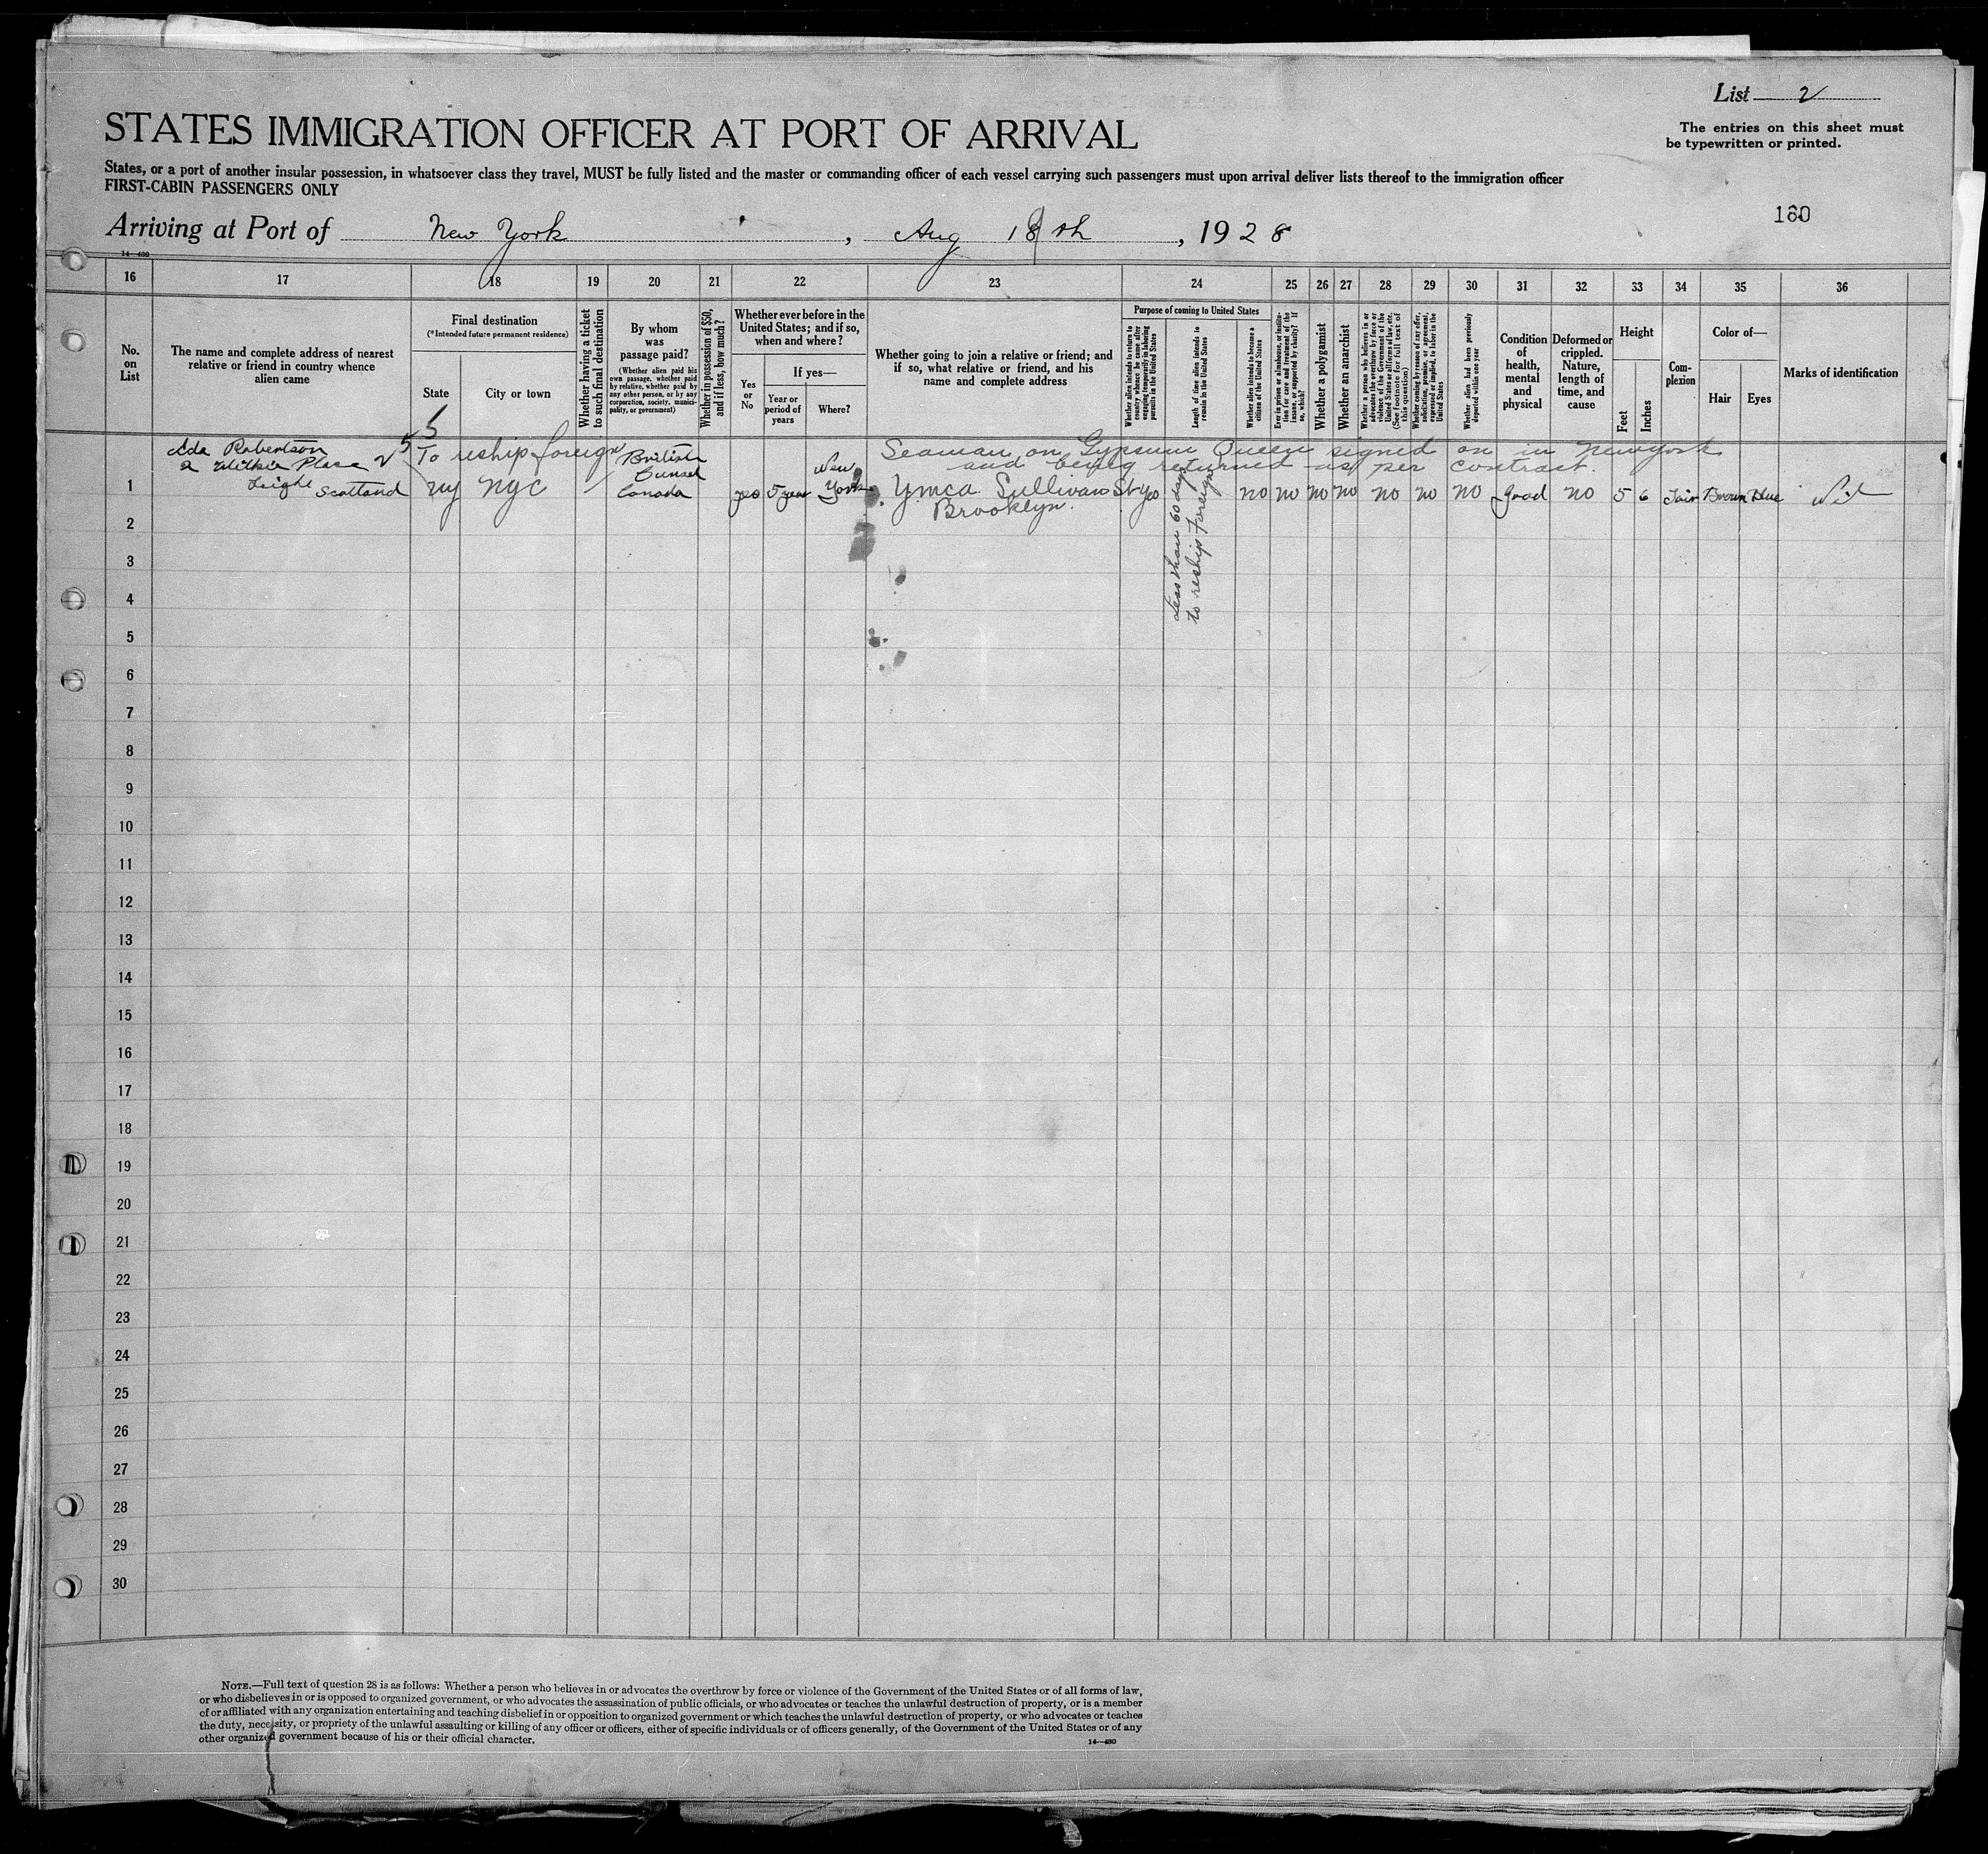 List 2
The entries on this sheet must
be typewritten or printed.
STATES IMMIGRATION OFFICER AT PORT OF ARRIVAL
States, or a port of another insular possession, in whatsoever class they travel, MUST be fully listed and the master or commanding officer of each vessel carrying such passengers must upon arrival deliver lists thereof to the immigration officer
FIRST-CABIN PASSENGERS ONLY
160
Arriving at Port of New York, Aug 18th, 1928
14—430
16 17 18 19 20 21 22 23 24 25 26 27 28 29 30 31 32 33 34 35 36
No.
on
List
The name and complete address of nearest
relative or friend in country whence
alien came
Final destination
(*Intended future permanent residence)
State
City or town
Whether having a ticket
to such final destination
By whom
was
passage paid?
(Whether alien paid his
own passage, whether paid
by relative, whether paid by
any other person, or by any
corporation, society, munici-
pality, or government)
Whether in possession of $50,
and if less, how much?
Whether ever before in the
United States; and if so,
when and where?
Yes
or
No
If yes—
Year or
period of
years
Where?
Whether going to join a relative or friend; and
if so, what relative or friend, and his
name and complete address
Purpose of coming to United States
Whether alien intends to return to
country whence he came after
engaging temporarily in laboring
pursuits in the United States
Length of time alien intends to
remain in the United States
Whether alien intends to become a
citizen of the United States
Ever in prison or almshouse, or institu-
tion for care and treatment of the
insane, or supported by charity? If
so, which?
Whether a polygamist
Whether an anarchist
Whether a person who believes in or
advocates the overthrow by force or
violence of the Government of the
United States or all forms of law, etc.
(See footnote for full text of
this question)
Whether coming by reason of any offer,
solicitation, promise, or agreement,
expressed or implied, to labor in the
United States
Whether alien had been previously
deported within one year
Condition
of
health,
mental
and
physical
Deformed or
crippled.
Nature,
length of
time, and
cause
Height
Feet
Inches
Com-
plexion
Color of—
Hair
Eyes
Marks of identification
5
5
Ada Robertson
2 Wilkie Place
Leight Scotland
To reship foreign
British
Consul
Canada
Seaman on Gypsum Queen signed on in New york
and being returned as per contract.
1 ny NYC yes 5 year New York Ymca Sullivan St yes no no no no no no no Good no 5 6 Fair Brown Blue Nil
Brooklyn.
Less than 60 days
to reship foreign
2
3
4
5
6
7
8
9
10
11
12
13
14
15
16
17
18
19
20
21
22
23
24
25
26
27
28
29
30
NOTE.—Full text of question 28 is as follows: Whether a person who believes in or advocates the overthrow by force or violence of the Government of the United States or of all forms of law,
or who disbelieves in or is opposed to organized government, or who advocates the assassination of public officials, or who advocates or teaches the unlawful destruction of property, or is a member
of or affiliated with any organization entertaining and teaching disbelief in or opposition to organized government or which teaches the unlawful destruction of property, or who advocates or teaches
the duty, necessity, or propriety of the unlawful assaulting or killing of any officer or officers, either of specific individuals or of officers generally, of the Government of the United States or of any
other organized government because of his or their official character.
14—430